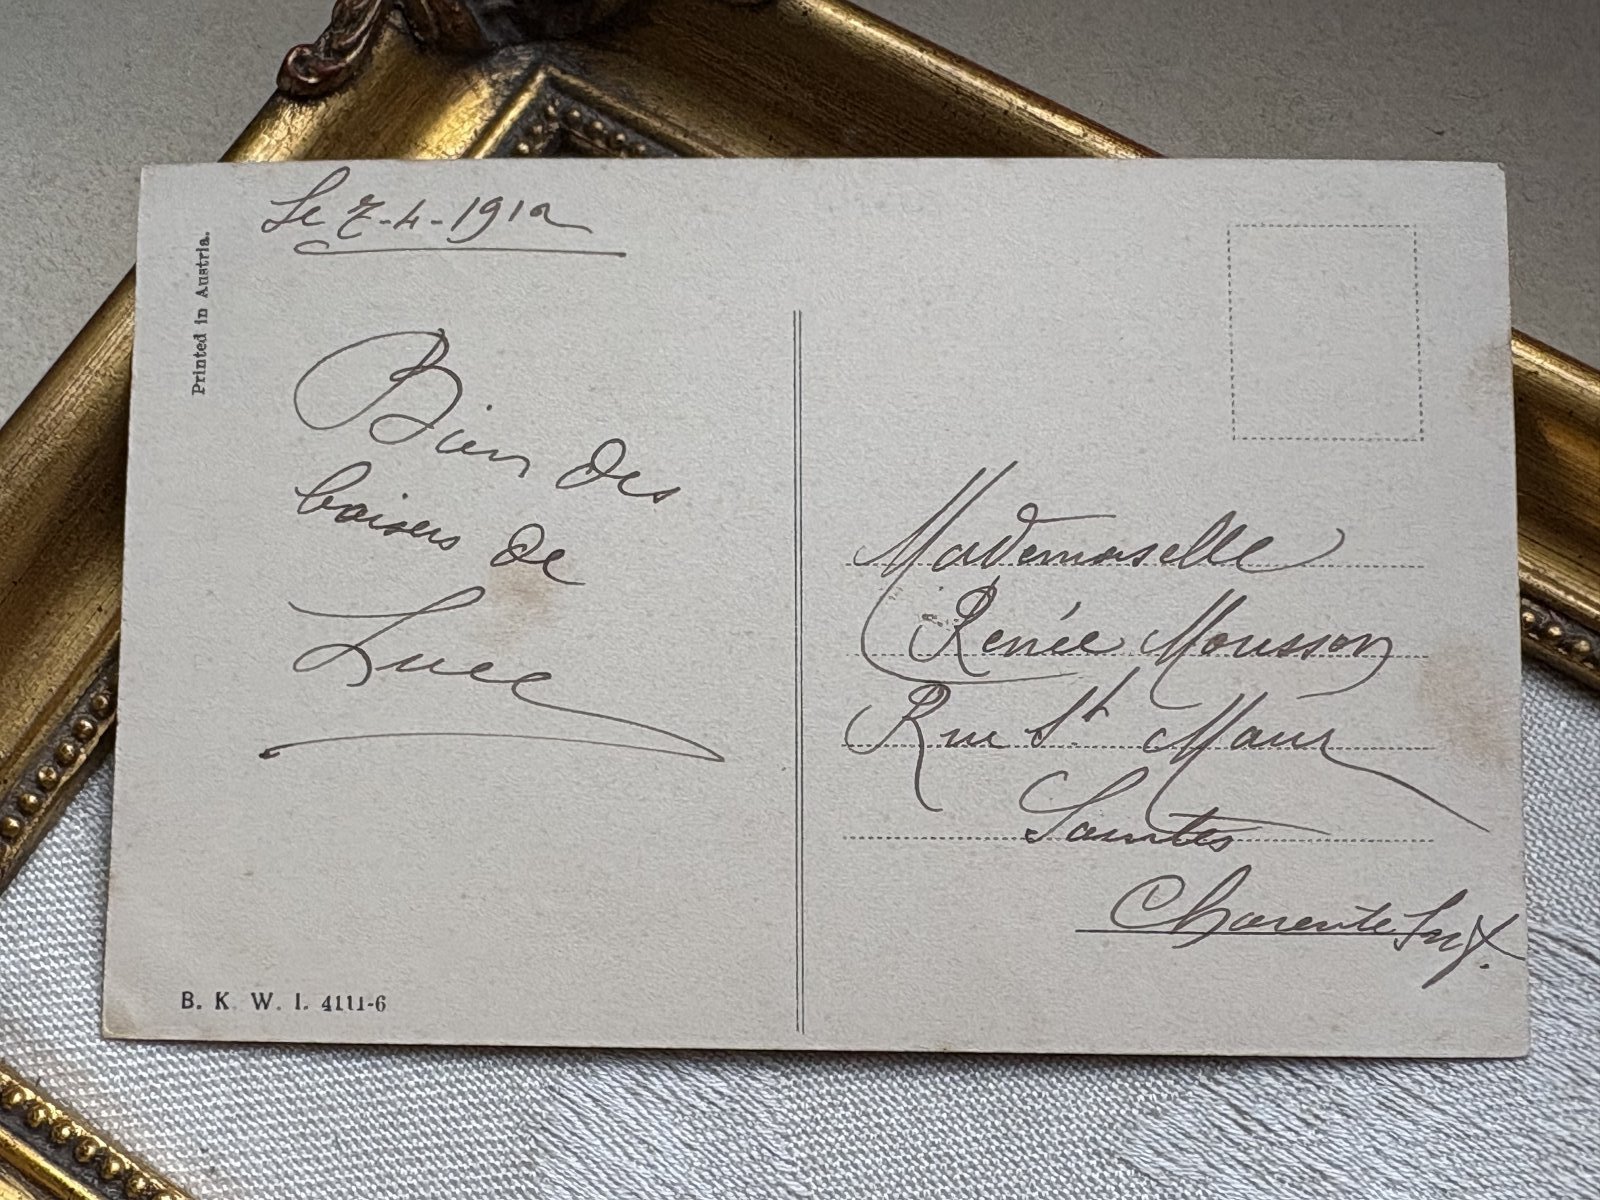 Le 7-4-1912
Printed in Austria.
Bien des
baisers de
Luce
Mademoiselle
Renée Mousson
Rue St Maur
Saintes
Charente Infre
B. K. W. I. 4111-6